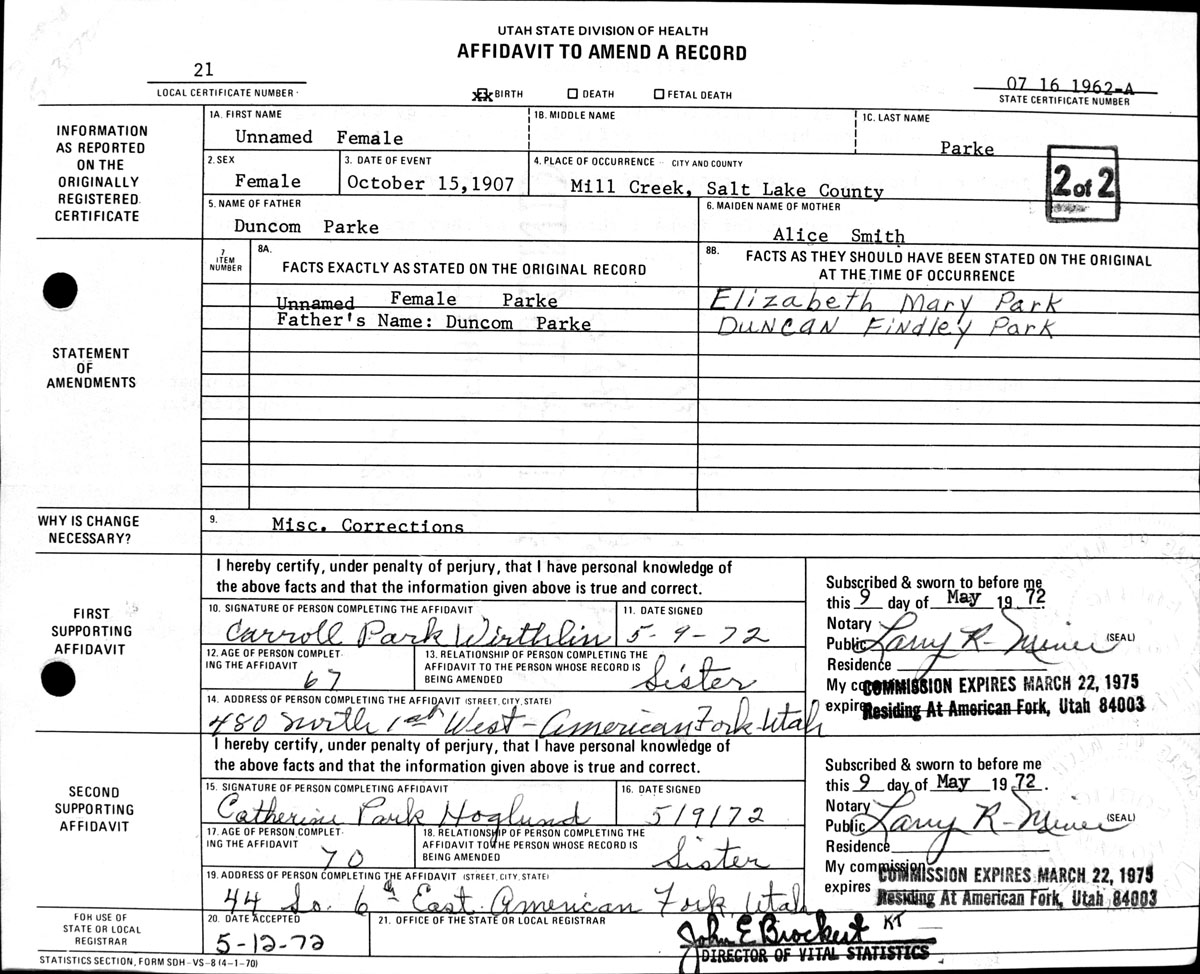 UTAH STATE DIVISION OF HEALTH
AFFIDAVIT TO AMEND A RECORD
21
LOCAL CERTIFICATE NUMBER
XX BIRTH ☐ DEATH ☐ FETAL DEATH
07 16 1962-A
STATE CERTIFICATE NUMBER
INFORMATION AS REPORTED ON THE ORIGINALLY REGISTERED CERTIFICATE
1A. FIRST NAME
Unnamed Female
1B. MIDDLE NAME
1C. LAST NAME
Parke
2. SEX
Female
3. DATE OF EVENT
October 15,1907
4. PLACE OF OCCURRENCE - CITY AND COUNTY
Mill Creek, Salt Lake County
2 of 2
5. NAME OF FATHER
Duncom Parke
6. MAIDEN NAME OF MOTHER
Alice Smith
STATEMENT OF AMENDMENTS
7 ITEM NUMBER
8A. FACTS EXACTLY AS STATED ON THE ORIGINAL RECORD
8B. FACTS AS THEY SHOULD HAVE BEEN STATED ON THE ORIGINAL AT THE TIME OF OCCURRENCE
Unnamed Female Parke
Elizabeth Mary Park
Father's Name: Duncom Parke
Duncan Findley Park
WHY IS CHANGE NECESSARY?
9. Misc. Corrections
FIRST SUPPORTING AFFIDAVIT
I hereby certify, under penalty of perjury, that I have personal knowledge of
the above facts and that the information given above is true and correct.
10. SIGNATURE OF PERSON COMPLETING THE AFFIDAVIT
Carroll Park Wirthlin
11. DATE SIGNED
5-9-72
12. AGE OF PERSON COMPLETING THE AFFIDAVIT
67
13. RELATIONSHIP OF PERSON COMPLETING THE AFFIDAVIT TO THE PERSON WHOSE RECORD IS BEING AMENDED
Sister
14. ADDRESS OF PERSON COMPLETING THE AFFIDAVIT (STREET, CITY, STATE)
480 North 1st West - American Fork Utah
Subscribed & sworn to before me
this 9 day of May 19 72
Notary
Public Larry R. Miner (SEAL)
Residence
My co
expire
COMMISSION EXPIRES MARCH 22, 1975
Residing At American Fork, Utah 84003
SECOND SUPPORTING AFFIDAVIT
I hereby certify, under penalty of perjury, that I have personal knowledge of
the above facts and that the information given above is true and correct.
15. SIGNATURE OF PERSON COMPLETING AFFIDAVIT
Catherine Park Hoglund
16. DATE SIGNED
5/9/72
17. AGE OF PERSON COMPLETING THE AFFIDAVIT
70
18. RELATIONSHIP OF PERSON COMPLETING THE AFFIDAVIT TO THE PERSON WHOSE RECORD IS BEING AMENDED
Sister
19. ADDRESS OF PERSON COMPLETING THE AFFIDAVIT (STREET, CITY, STATE)
44 So. 6th East American Fork, Utah
Subscribed & sworn to before me
this 9 day of May 19 72.
Notary
Public Larry R. Miner (SEAL)
Residence
My commission
expires
COMMISSION EXPIRES MARCH 22, 1975
Residing At American Fork, Utah 84003
FOR USE OF STATE OR LOCAL REGISTRAR
20. DATE ACCEPTED
5-12-72
21. OFFICE OF THE STATE OR LOCAL REGISTRAR
John E Brockert KT
DIRECTOR OF VITAL STATISTICS
STATISTICS SECTION, FORM SDH-VS-8 (4-1-70)